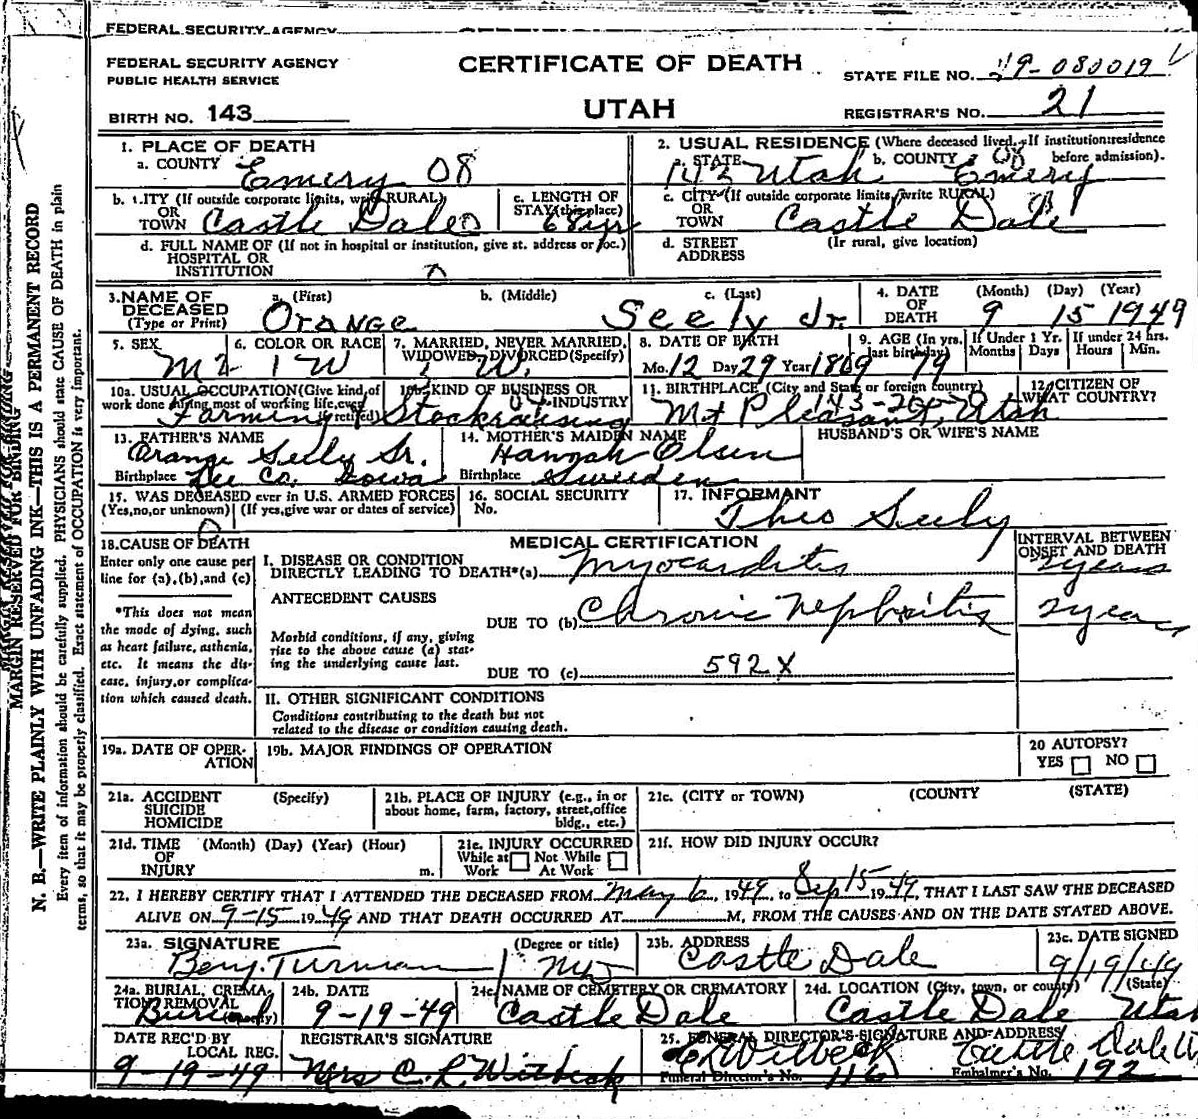 FEDERAL SECURITY AGENCY
FEDERAL SECURITY AGENCY
PUBLIC HEALTH SERVICE
CERTIFICATE OF DEATH
STATE FILE NO. 49-080019
BIRTH NO. 143
UTAH
REGISTRAR'S NO. 21
1. PLACE OF DEATH
a. COUNTY Emery 08
2. USUAL RESIDENCE (Where deceased lived. If institution: residence before admission).
a. STATE Utah b. COUNTY Emery
b. CITY (If outside corporate limits, write RURAL) OR TOWN Castle Dale
c. LENGTH OF STAY (this place) 68 yrs
c. CITY (If outside corporate limits, write RURAL) OR TOWN Castle Dale
d. FULL NAME OF (If not in hospital or institution, give st. address or loc.) HOSPITAL OR INSTITUTION 0
d. STREET ADDRESS (Ir rural, give location)
3. NAME OF DECEASED (Type or Print)
a. (First) Orange
b. (Middle)
c. (Last) Seely Jr.
4. DATE OF DEATH (Month) (Day) (Year)
9 15 1949
5. SEX M
6. COLOR OR RACE W
7. MARRIED, NEVER MARRIED, WIDOWED, DIVORCED (Specify) W.
8. DATE OF BIRTH Mo. 12 Day 29 Year 1869
9. AGE (In yrs. last birthday) 79
If Under 1 Yr. Months Days
If under 24 hrs. Hours Min.
10a. USUAL OCCUPATION (Give kind of work done during most of working life, even retired)
10b. KIND OF BUSINESS OR INDUSTRY
Farming & Stockraising
11. BIRTHPLACE (City and State or foreign country)
Mt Pleasant, Utah
12. CITIZEN OF WHAT COUNTRY?
13. FATHER'S NAME
Orange Seely Sr.
Birthplace Lee Co. Iowa
14. MOTHER'S MAIDEN NAME
Hannah Olsen
Birthplace Sweden
HUSBAND'S OR WIFE'S NAME
15. WAS DECEASED ever in U.S. ARMED FORCES
(Yes, no, or unknown) (If yes, give war or dates of service)
0
16. SOCIAL SECURITY No.
17. INFORMANT
Theo Seely
18. CAUSE OF DEATH
Enter only one cause per line for (a), (b), and (c)
MEDICAL CERTIFICATION
INTERVAL BETWEEN ONSET AND DEATH
I. DISEASE OR CONDITION
DIRECTLY LEADING TO DEATH*(a) Myocarditis
2 years
*This does not mean the mode of dying, such as heart failure, asthenia, etc. It means the disease, injury, or complication which caused death.
ANTECEDENT CAUSES
DUE TO (b) Chronic Nephritis
2 years
Morbid conditions, if any, giving rise to the above cause (a) stating the underlying cause last.
DUE TO (c) 592X
II. OTHER SIGNIFICANT CONDITIONS
Conditions contributing to the death but not related to the disease or condition causing death.
19a. DATE OF OPERATION
19b. MAJOR FINDINGS OF OPERATION
20 AUTOPSY?
YES NO
21a. ACCIDENT SUICIDE HOMICIDE (Specify)
21b. PLACE OF INJURY (e.g., in or about home, farm, factory, street, office bldg., etc.)
21c. (CITY or TOWN) (COUNTY (STATE)
21d. TIME OF INJURY (Month) (Day) (Year) (Hour) m.
21e. INJURY OCCURRED
While at Work Not While At Work
21f. HOW DID INJURY OCCUR?
22. I HEREBY CERTIFY THAT I ATTENDED THE DECEASED FROM May 6, 1949, to Sep 15 1949, THAT I LAST SAW THE DECEASED
ALIVE ON 9-15 1949 AND THAT DEATH OCCURRED AT M, FROM THE CAUSES AND ON THE DATE STATED ABOVE.
23a. SIGNATURE (Degree or title)
Benj. Turman MD
23b. ADDRESS
Castle Dale
23c. DATE SIGNED
9/19/49
24a. BURIAL, CREMATION REMOVAL (Specify)
Burial
24b. DATE
9-19-49
24c. NAME OF CEMETERY OR CREMATORY
Castle Dale
24d. LOCATION (City, town, or county) (State)
Castle Dale Utah
DATE REC'D BY LOCAL REG.
9-19-49
REGISTRAR'S SIGNATURE
Mrs C. L. Witbeck
25. FUNERAL DIRECTOR'S SIGNATURE AND ADDRESS
Witbeck Castle Dale
Funeral Director's No. 116
Embalmer's No. 192
MARGIN RESERVED FOR BINDING
N. B.—WRITE PLAINLY WITH UNFADING INK—THIS IS A PERMANENT RECORD
Every item of information should be carefully supplied. PHYSICIANS should state CAUSE OF DEATH in plain
terms, so that it may be properly classified. Exact statement of OCCUPATION is very important.